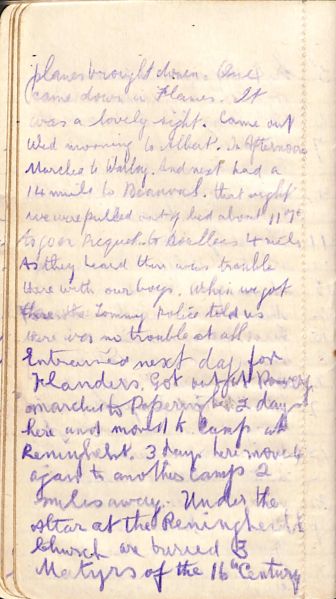 planes brought down. One
came down in Flames. It
was a lovely sight. Came out
Wed morning to Albert. In Afternoon
Marched to Warloy. And next had a
14 mile to Beauval. that night
we were pulled out of bed about 11
to go on Picquet to Doullens 4 miles
As they heard there was trouble
there with our boys. When we got
there the Tommy Police told us
there was no trouble at all
Entrained next day for
Flanders. Got out at
marched to Poperinghe 2 days
here and moved to Camp at
Reninghelst. 3 days here moved
again to another Camp 2
miles away. Under the
Altar at the Reninghelst
Church are buried 3
Martyrs of the 16th Century